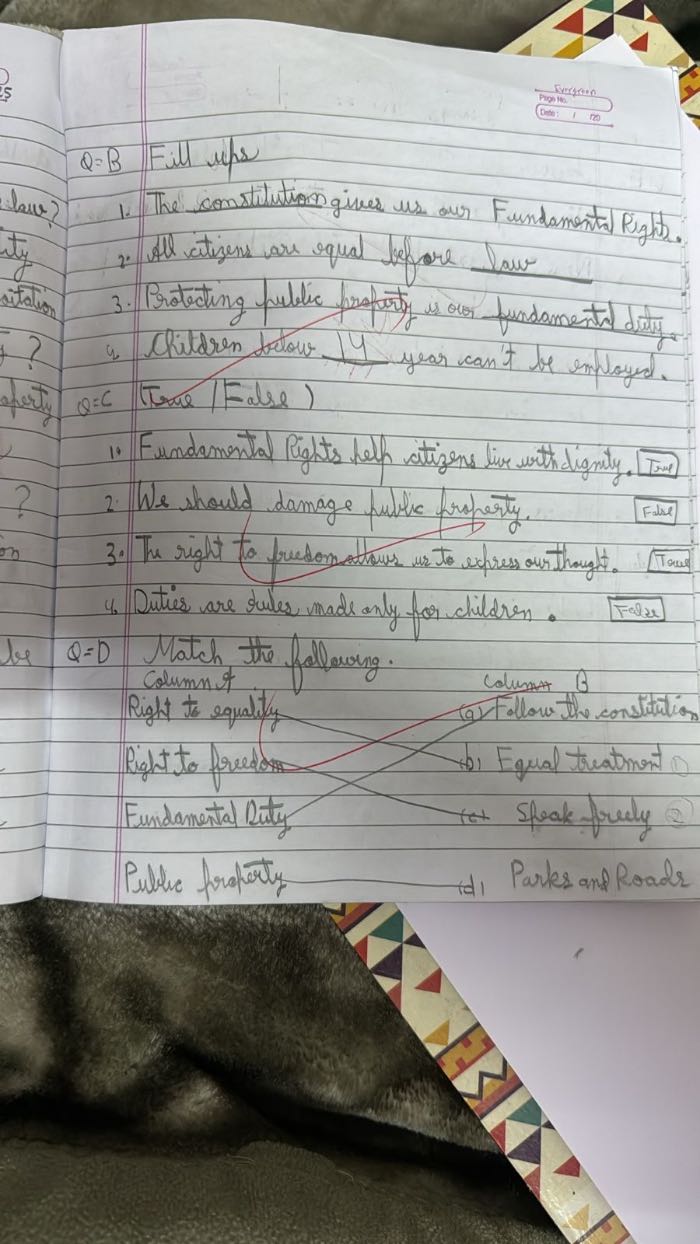 Evergreen
Page No.
Date: / /20
Q=B Fill ups
1. The constitution gives us our Fundamental Rights.
2. All citizens are equal before law
3. Protecting public property is our fundamental duty.
4. Children below 14 year can't be employed.
Q=C (True / False)
1. Fundamental Rights help citizens live with dignity. True
2. We should damage public property. False
3. The right to freedom allows us to express our thought. True
4. Duties are rules made only for children. False
Q=D Match the following.
Column A Column B
Right to equality (a) Follow the constitution
Right to freedom (b) Equal treatment 1
Fundamental Duty (c) Speak freely 2
Public property (d) Parks and Roads
25
law?
?
?
be